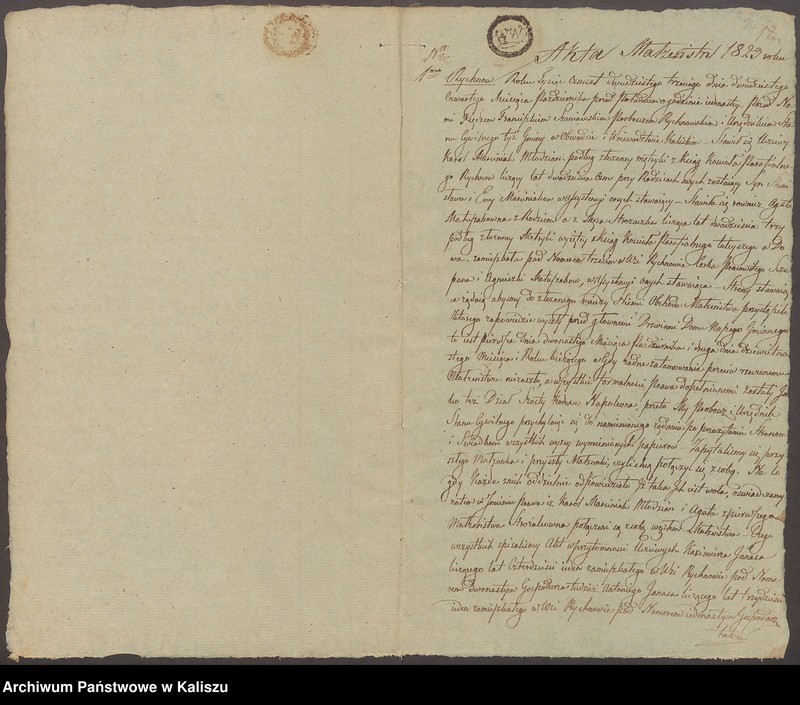 WW
12
Akta Małżeństw 1823 roku
Nro
1mo
Rychnow Roku Tysiąc Osmset dwudziestego trzeciego dnia dwudziestego
Czwartego Miesiąca Października przed Południem o godzinie iedenasty. Przed Na-
mi Xiędzem Franciszkiem Proboszczem Rychnowskim i Urzędnikiem Sta-
nu Cywilnego tyż Gminy w Obwodzie i Woiewodztwie Kaliskim – Stawił się Uczciwy
Karol Marciniak Młodzian podług złożoney metryki z Xiąg Kościoła Parafialne-
go Rychnow liczący lat dwadzieścia przy Rodzicach swych zostaiący Syn Stani-
sława i Ewy Marciniakow w assystencyi onych stawaiący – Stawiła się rownież Agata
Matuszakowna z Rodzicow a z Męża licząca lat dwadzieścia trzy
podług złożoney Metryki wyjętey z Xiąg Kościoła Parafialnego tuteyszego w Do-
wa zamieszkała pod Numerem trzecim w Wsi Rychnowie Corka Pracowitego Szcze-
pana i Agnieszki Matuszakow, w assystencyi onych stawaiąca – Strony stawaią-
ce żądaią abyśmy do ułożonego między Niemi Obchodu Małżeństwa przystąpili
Którego zapowiedzie wyszły przed głownemi Drzwiami Domu Naszego Gminnego
to iest Pierwsza dnia dwunastego Miesiąca Października i druga dnia dziewiętna-
stego Miesiąca i Roku bieżącego a Gdy żadne zatamowanie przeciw rzeczonemu
Małżeństwu niezaszło, a wszystkie formalności Prawa dopełnionemi zostały Ja-
ko też Dział Szosty Kodexu Napoleona, przeto My Proboszcz i Urzędnik
Stanu Cywilnego przychylaiąc się do namienionego żądania po przeczytaniu Stronom
i Swiadkom wszystkich wyżey wymienionych papierow. Zapytaliśmy się przy-
szłego Małżonka i przyszły Małżonki, czyli chcą połączyć się z sobą. Na to
gdy Każde z nich oddzielnie odpowiedziało Iż taka Ich iest wola, oświadczamy
zatem w Jmieniu Prawa iż Karol Marciniak Młodzian i Agata z pierwszego
Małżeństwa połączeni są z sobą węzłem Małżeństwa. Czego
wszystkich spisaliśmy Akt w przytomności Uczciwych Kazimierza Janasa
liczącego lat Czterdzieści ieden zamieszkałego w Wsi Rychnowie pod Nume-
rem dwunastym Gospodarza tudzież Antoniego Janasa liczącego lat trzydzieści
ieden zamieszkałego w Wsi Rychnowie pod Numerem iedenastym Gospodarz
także
Archiwum Państwowe w Kaliszu